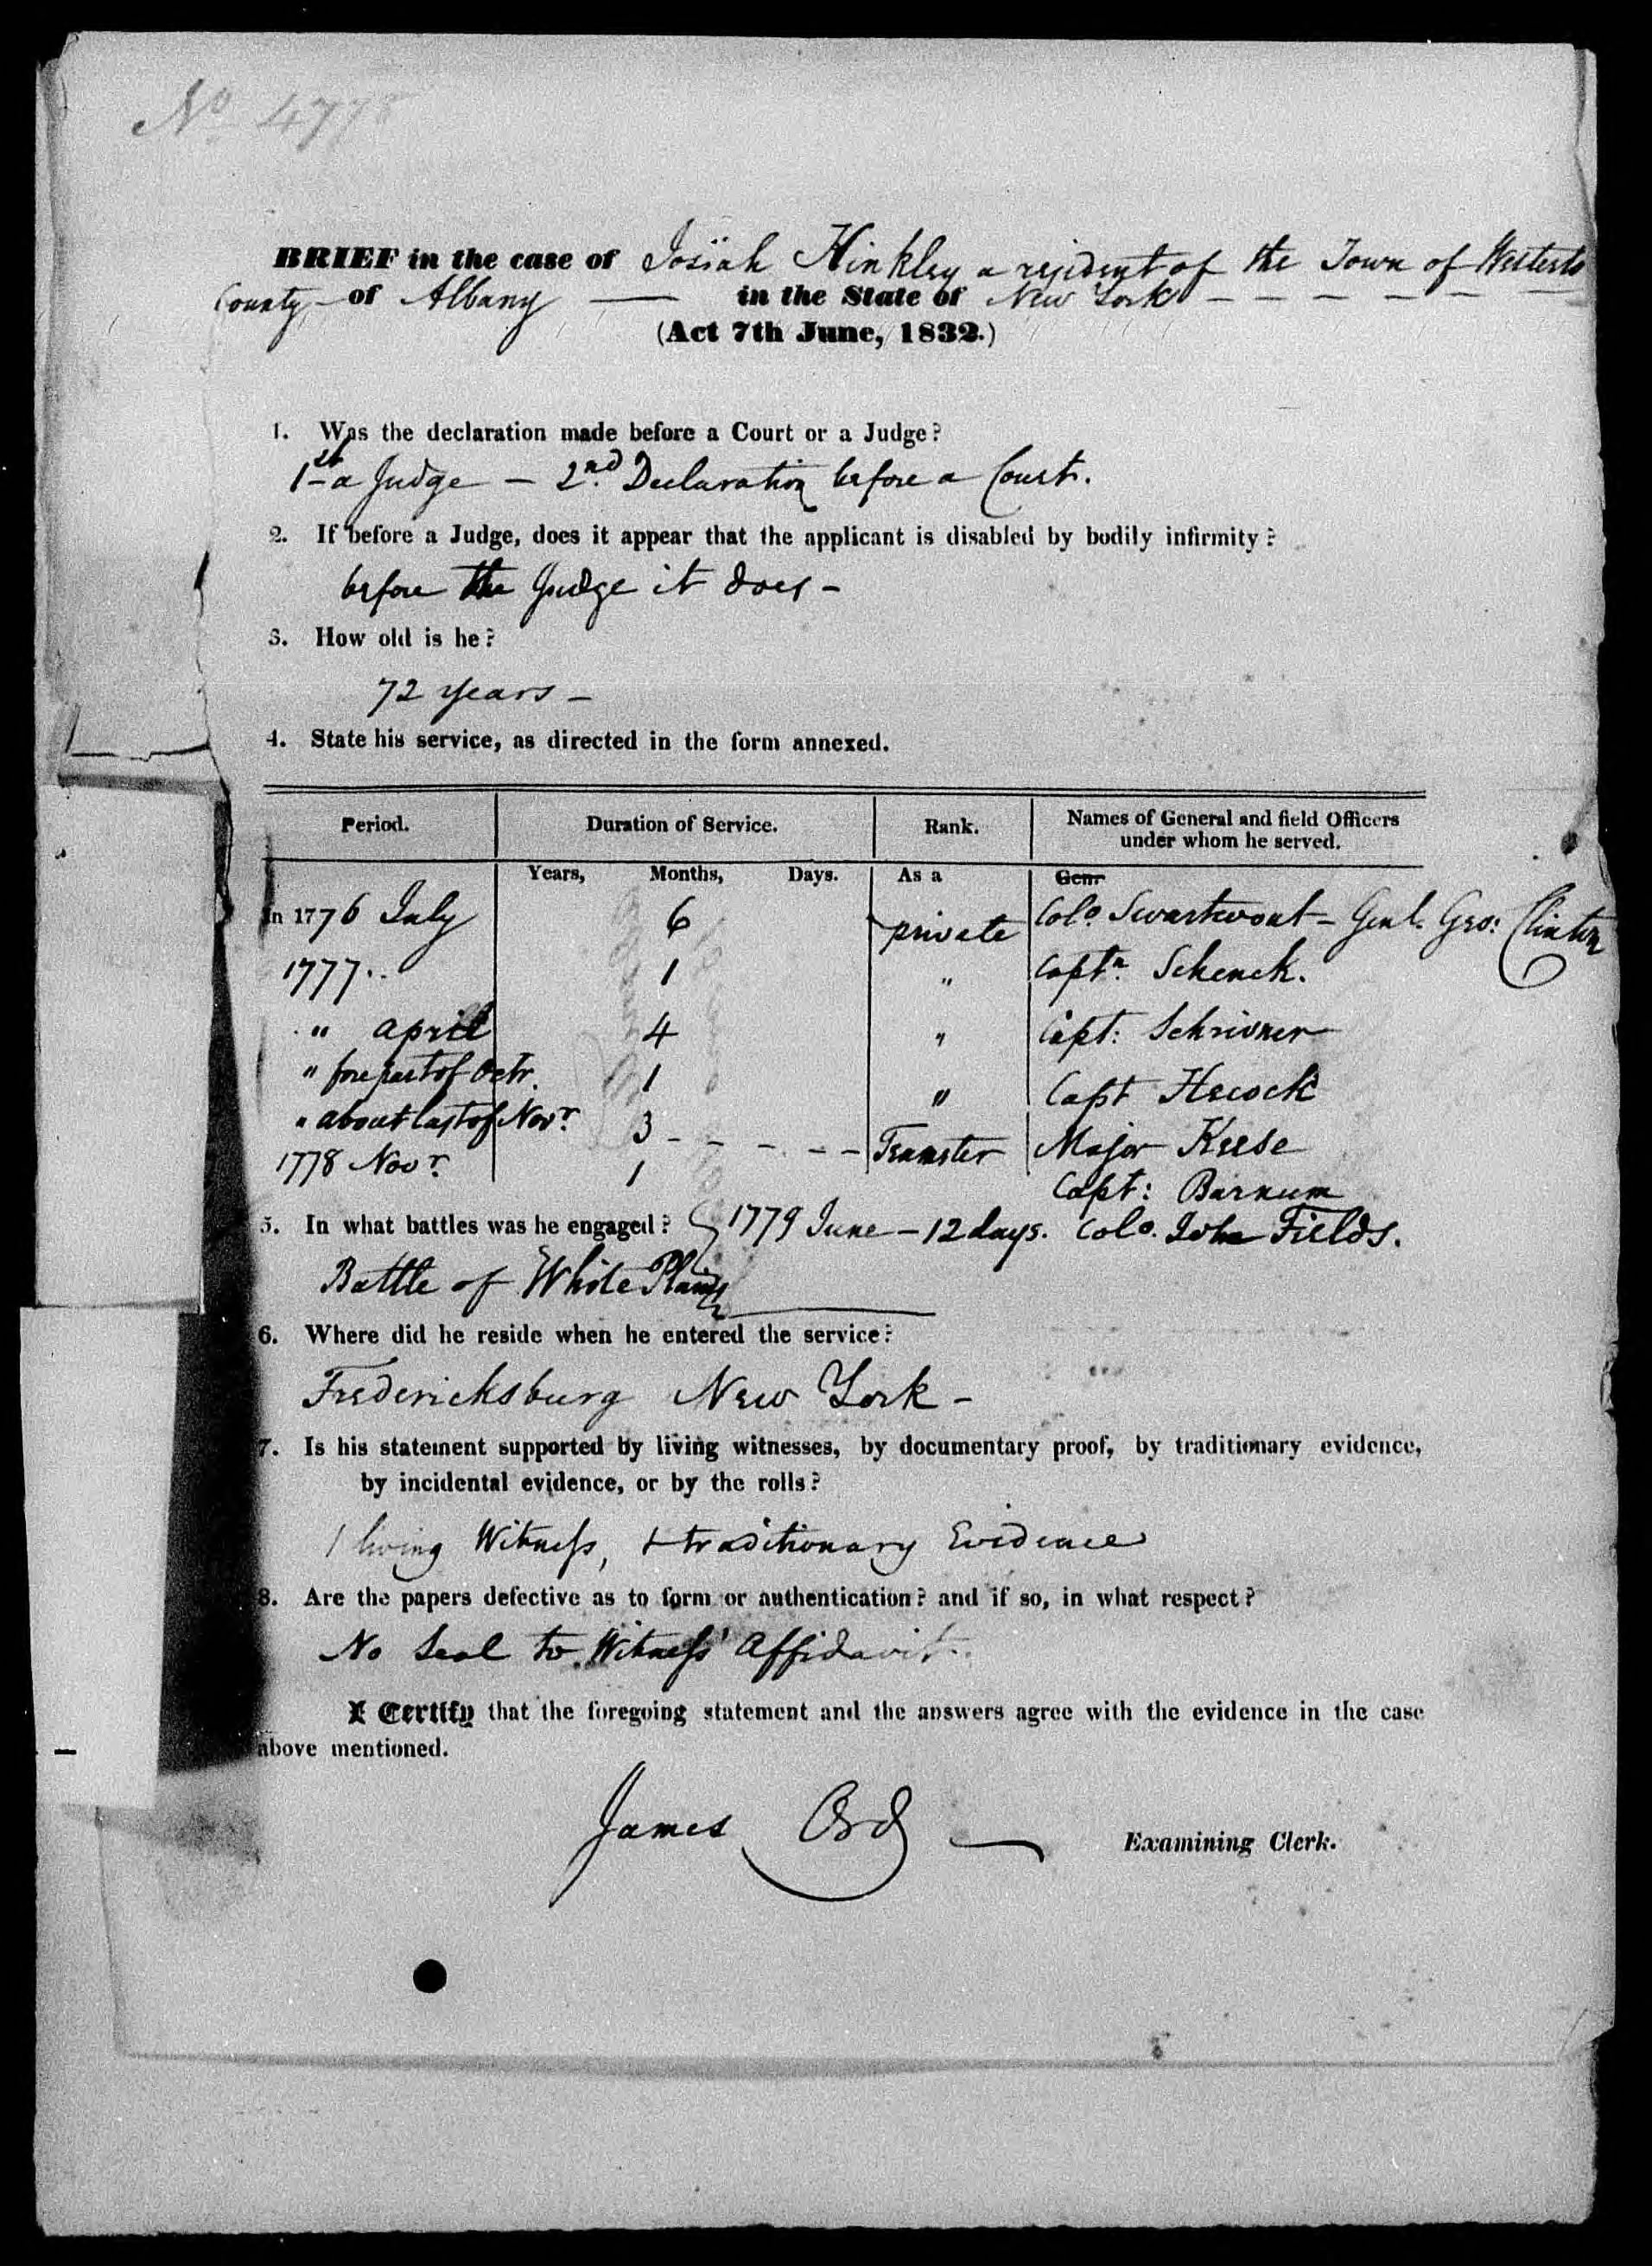 No 4778
BRIEF in the case of Josiah Hinkley a resident of the Town of Westerlo
County of Albany — in the State of New York – – – – – –
(Act 7th June, 1832.)
1. Was the declaration made before a Court or a Judge?
1st a Judge – 2nd. Declaration before a Court.
2. If before a Judge, does it appear that the applicant is disabled by bodily infirmity?
before the Judge it does –
3. How old is he?
72 years –
4. State his service, as directed in the form annexed.
Period. Duration of Service. Rank. Names of General and field Officers
under whom he served.
Years, Months, Days. As a Gen.
In 1776 July 6 private Colo. Swartwout – Genl. Geo: Clinton
1777.. 1 " Captn. Schenck.
" april 4 " Capt: Schrivner
" fore part of Octr. 1 " Capt Hecock
" about last of Novr. 3 – – – – – Teamster Major Keese
1778 Novr. 1 Capt: Barnum
5. In what battles was he engaged? 1779 June – 12 days. Colo. John Fields.
Battle of White Plains
6. Where did he reside when he entered the service?
Fredericksburg New York –
7. Is his statement supported by living witnesses, by documentary proof, by traditionary evidence,
by incidental evidence, or by the rolls?
1 living Witness, & traditionary Evidence
8. Are the papers defective as to form or authentication? and if so, in what respect?
No Seal to Witness' affidavit.
I Certify that the foregoing statement and the answers agree with the evidence in the case
above mentioned.
James Ord — Examining Clerk.